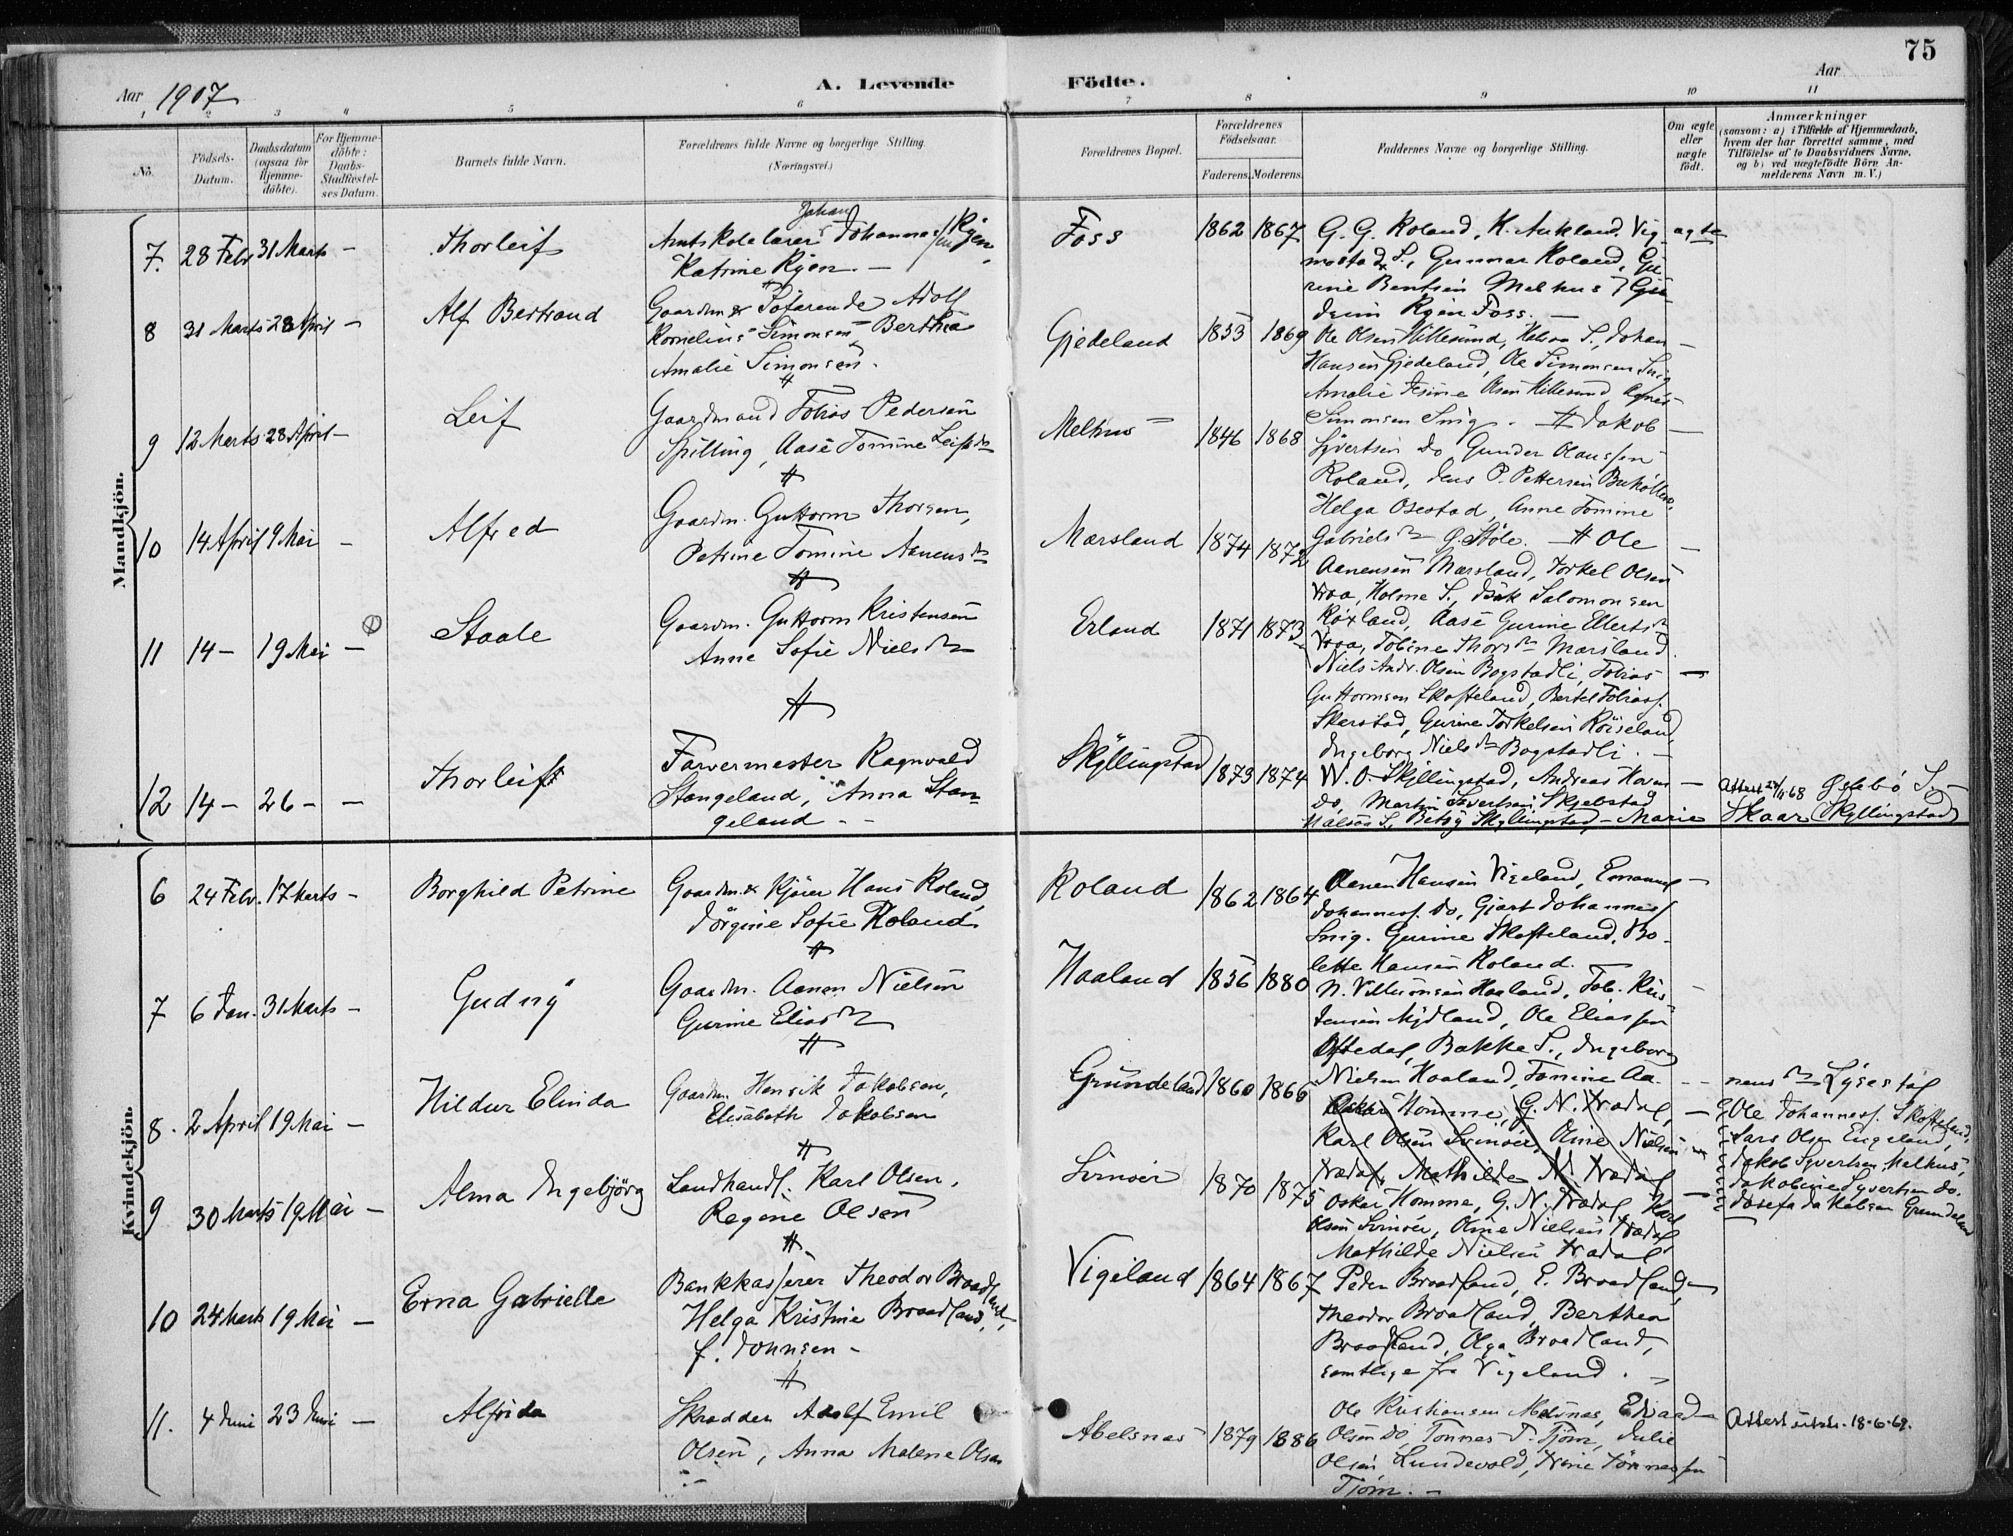 75
Aar 1907
A. Levende Födte.
Aar
1 2 3 4 5 6 7 8 9 10 11
No.
Födsels-Datum.
Daabsdatum (ogsaa for Hjemmedöbte).
For Hjemmedöbte: Daabs-Stadfæstelses Datum.
Barnets fulde Navn.
Forældrenes fulde Navne og borgerlige Stilling. (Næringsvei.)
Forældrenes Bopæl.
Forældrenes Födselsaar.
Faderens. Moderens.
Faddernes Navne og borgerlige Stilling.
Om ægte eller uægte födt.
Anmærkninger
(saasom: a) i Tilfælde af Hjemmedaab,
hvem der har forrettet samme, med
Tilföielse af to Daabsvidners Navne,
og b) ved uægtefödte Börn Anmelderens Navn m. V.)
Mandkjön.
7. 28 Febr 31 Marts – Thorleif
Amtskolelærer Johan Johannes Ryen,
Katrine Ryen. –
Foss 1862 1867
G. G. Roland, K. Aukland, Vig
mostad S., Gunnar Roland,
rine Bentsen Melhus
Ryen Foss. –
ægte
8 31 Marts 28 April – Alf Bertrand
Gaardm. & Söfarende Adolf
Kornelius Simonsen Bertha
Amalie Simonsen.
Gjedeland 1853 1869
Ole Olsen Hillesund, Halsaa S., Johan
Hansen Gjedeland, Ole Simonsen Snig
Amalie Jesine Olsen Hillesund, Agnes
Simonsen Snig.
9 12 Marts 28 April – Leif
Gaardmand Tobias Pedersen
Spilling, Aase Tomine Leifsdtr
Melhus 1846 1868
Jakob
Syvertsen do, Gunder Olaussen
Roland, Jens P. Pettersen
Helga Osestad, Anne Tomine
Gabrielsdtr G. Stöle.
10 14 April 9 Mai – Alfred
Gaardm. Guttorm Thorsen,
Petrine Tomine Aanensdtr
Mærsland 1874 1872
Ole
Aanensen Mærsland, Torkel Olsen
Vraa, Holme S., Isak Salomonsen
Röxland, Aase Gurine Ellertsdtr
Vraa, Tobine Thorsdtr Mærsland.
11 14 – 19 Mai – Staale
Gaardm. Guttorm Kristensen
Anne Sofie Nielsdtr
Erland 1871 1873
Niels Andr. Olsen Bogstadli, Tobias
Guttormsen Skofteland, Bertel Tobiass.
Skerstad, Gurine Torkelsen Röiseland,
Ingeborg Nielsdtr Bogstadli. –
12 14 – 26 – – Thorleif
Farvermester Ragnvald
Stangeland, Anna Stangeland –
Skyllingstad 1873 1874
W. O. Skyllingstad, Andreas
do, Martin Syvertsen Skjebstad
Halsaa S., Betsy Skyllingstad, – Marie
Attest 68
Skaar Skyllingstad
Kvindekjön.
6 24 Febr. 17 Marts – Borghild Petrine
Gaardm. & Kjører Hans Roland,
Jörgine Sofie Roland
Roland 1862 1864
Aanen Hansen Vigeland, Emanuel
Johanness. do, Gjert Johannes
Snig. Gurine Skofteland, Bo-
lette Hansen Roland.
7 6 Jan. 31 Marts – Gudny
Gaardm. Aanen Nielsen
Gurine Eliasdtr
Haaland 1856 1880
N. Villumsen Haaland, Tob. Kris-
tensen Nydland, Ole Eliassen
Oftedal, Bakke S., Ingeborg
Nielsen Haaland, Tomine Aa- nensdtr Lysestøl
8. 2 April 19 Mai – Hildur Elinda
Gaardm. Henrik Jakobsen,
Elisabeth Jakobsen
Gründeland 1860 1866
Oskar Homme, G. N. Trædal,
Karl Olsen Svinöer, Oline Nielsen
Trædal, Mathilde N. Trædal
Ole Johanness. Skofteland,
Lars Olsen Eigeland,
Jakob Syvertsen Melhus,
Jakobine Syvertsen do.
Josefa Jakobsen Grundeland
9 30 Marts 19 Mai – Alma Ingebjörg
Landhandl. Karl Olsen,
Regine Olsen
Svinöer 1870 1875
Oskar Homme, G. N. Trædal, Karl
Olsen Svinöer, Oline Nielsen Trædal
Mathilde Nielsen Trædal
10 24 Marts 19 Mai – Erna Gabrielle
Bankkasserer Theodor Broadland,
Helga Kristine Broadland,
f. Johnsen –
Vigeland 1864 1867
Peder Broadland, E. Broadland,
Theodor Broadland, Berthea
Broadland, Olga Broadland,
samtlige fra Vigeland.
11. 4 Juni 23 Juni – Alfrida
Skrædder Adolf Emil
Olsen, Anna Malene Olsen
Abelsnæs 1879 1886
Ole Kristiansen Abelsnæs, Edvard
Olsen do, Tönnes T. Tjöm, Julie
Olsen Lundevold, Trine Tönnessen
Tjöm. –
Attest utst. 18-6-69.